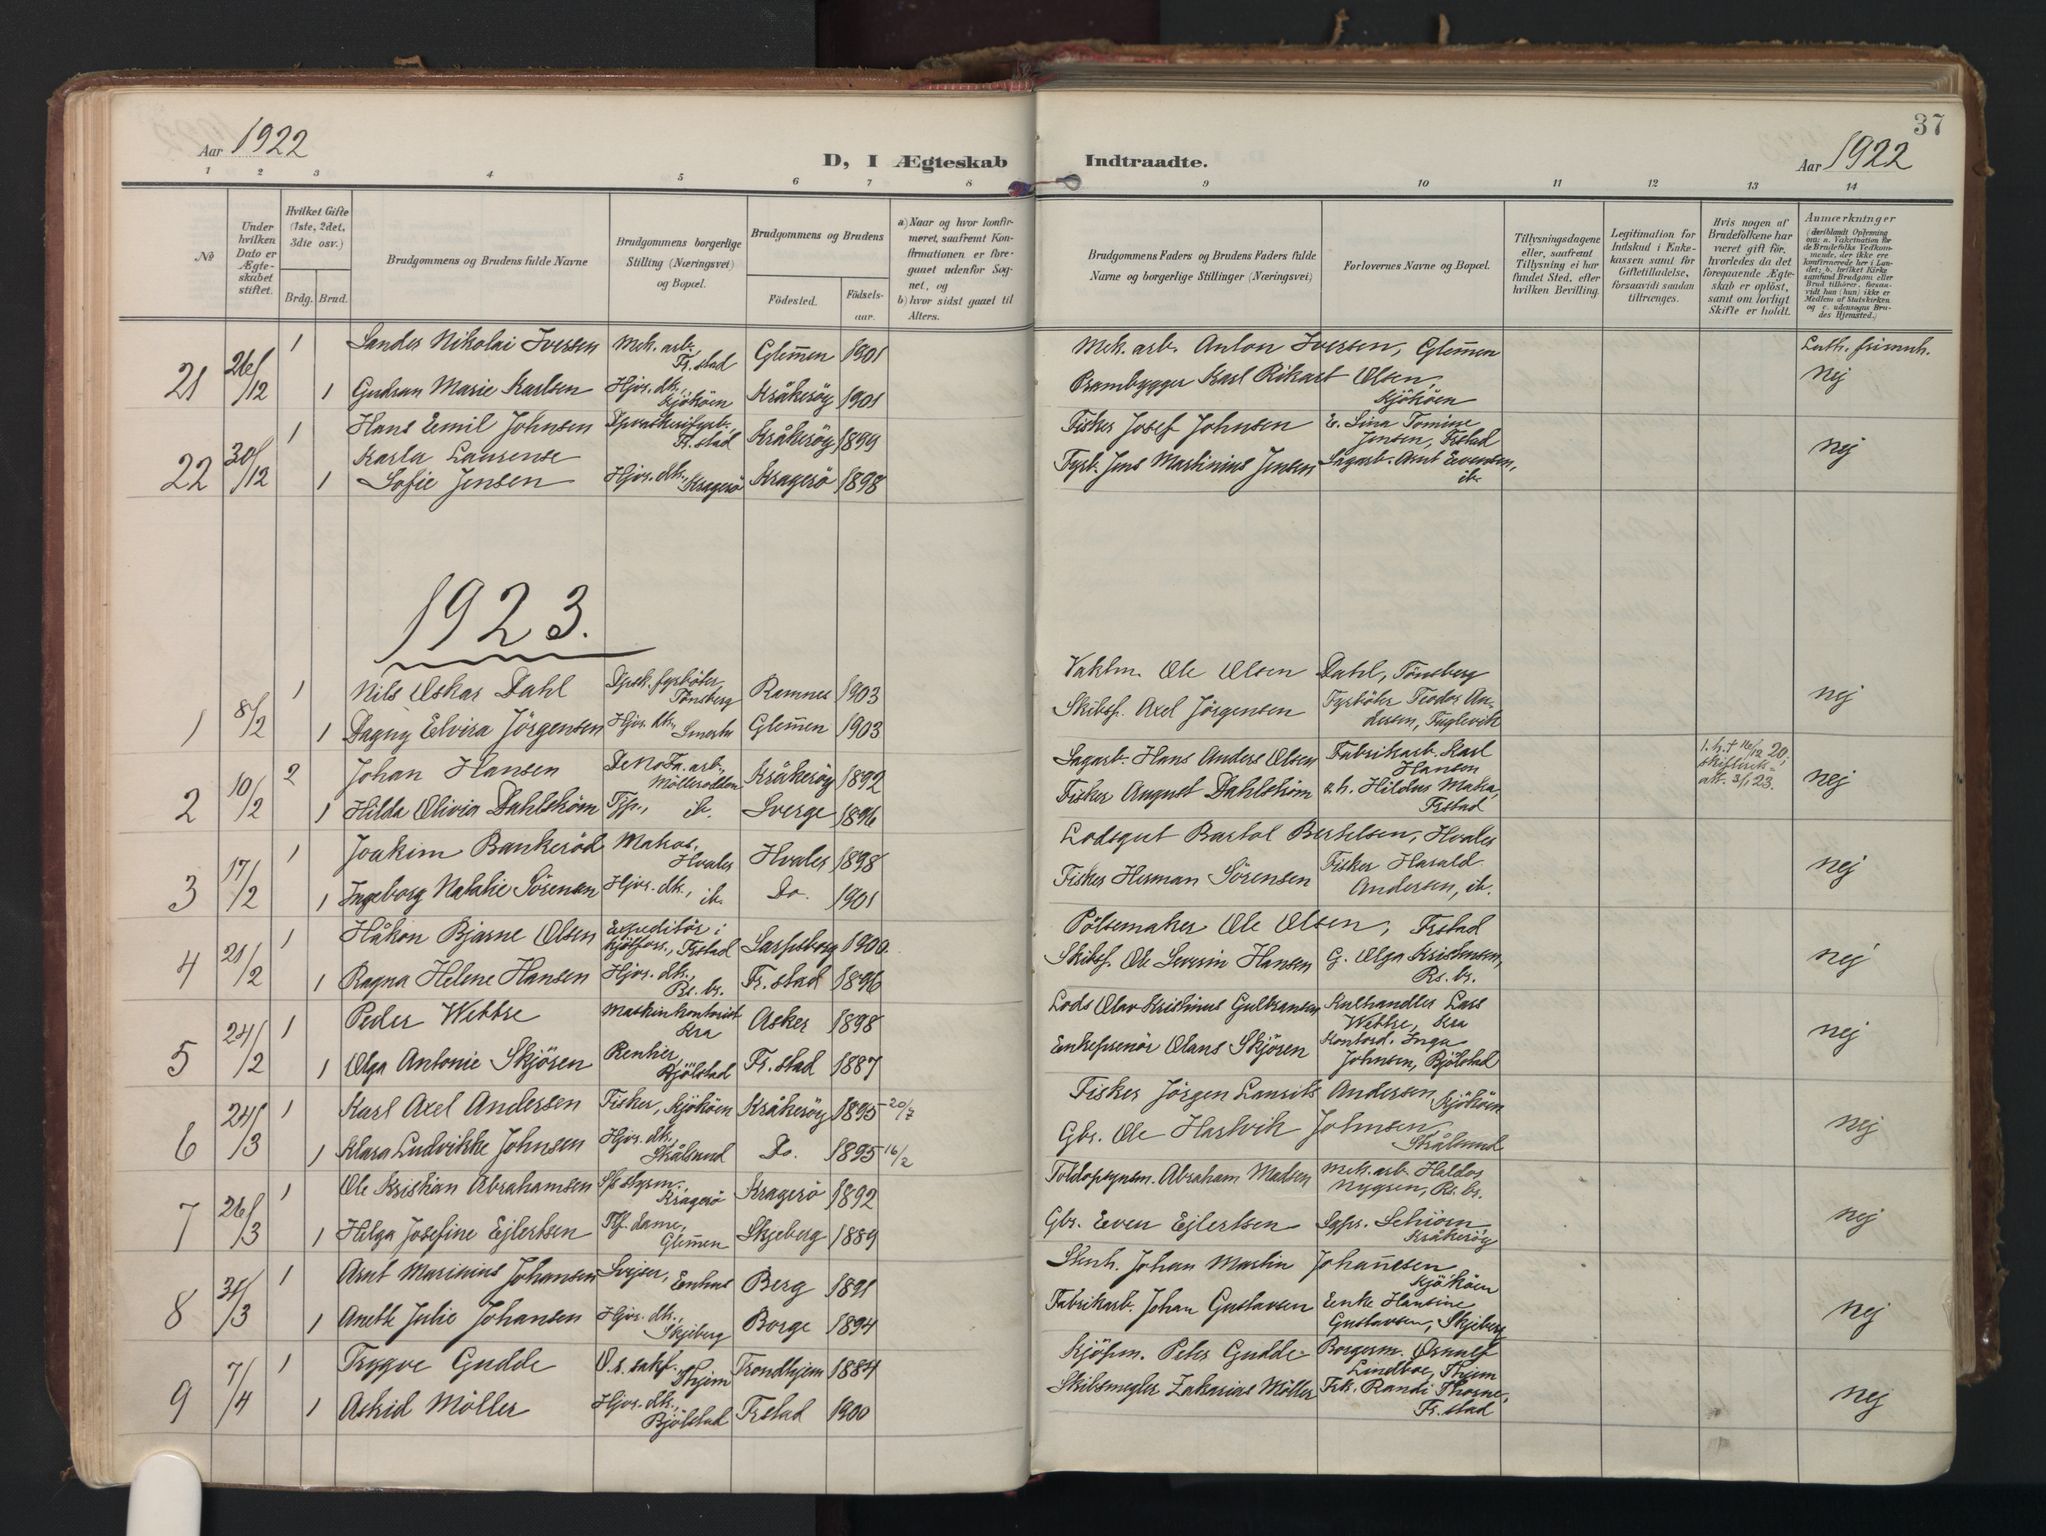 37
Aar 1922
D, I Ægteskab Indtraadte.
Aar 1922
1 2 3 4 5 6 7 8 9 10 11 12 13 14
No
Under hvilken Dato er Ægteskabet stiftet.
Hvilket Gifte (1ste, 2det, 3die osv.)
Brdg. Brud.
Brudgommens og Brudens fulde Navne
Brudgommens borgerlige Stilling (Næringsvei) og Bopæl.
Brudgommens og Brudens
Födested. Födsels-aar.
a) Naar og hvor konfirmeret, saafremt Konfirmationen er foregaaet udenfor Sognet, og
b) hvor sidst gaaet til Alters.
Brudgommens Faders og Brudens Faders fulde Navne og borgerlige Stillinger (Næringsvei)
Forlovernes Navne og Bopæl.
Tillysningsdagene eller, saafremt Tillysning ei har fundet Sted, efter hvilken Bevilling.
Legitimation for Indskud i Enkekassen samt for Giftetilladelse, forsaavidt saadan tiltrænges.
Hvis nogen af Brudefolkene har været gift för, hvorledes da det foregaaende Ægteskab er oplöst, samt om lovligt Skifte er holdt.
Anmærkninger
21 26/12 1 Sander Nikolai Iversen Mek. arb. Fr.stad Glemmen 1901 Mek. arb. Anton Iversen, Glemmen Luth. frimnh.
1 Gudrun Marie Karlsen Hjvr. dtr. Kjøkøen Kråkerøy 1901 Prambygger Karl Rikart Olsen, Kjøkøen nej
22 30/12 1 Hans Emil Johnsen Fr.stad Kråkerøy 1899 Fisker Josef Johnsen E. Lina Tomine Jensen, Frstad nej
1 Karla Laurense Sofie Jensen Hjvr. dtr. Kragerø Kragerø 1898 Fyrb. Jens Martinius Jensen Sagarb. Arnt Evensen, ib.
1923.
1 8/2 1 Nils Oskar Dahl Dpsk. fyrbøter, Tønsberg Ramnes 1903 Vaktm. Ole Olsen Dahl, Tønsberg nej
1 Dagny Elvira Jørgensen Hjvr. dtr. Glemmen 1903 Skibsf. Axel Jørgensen Fyrbøter Teodor Andersen, Fuglevik
2 10/2 2 Johan Hansen DeNoFa arb. Møllerodden Kråkerøy 1892 Sagarb. Hans Anders Olsen Fabrikarb. Karl Hansen nej
1 Hilda Olivia Dahlstrøm Tjp., ib. Sverge 1896 Fisker August Dahlstrøm Frstad
3 17/2 1 Joakim Bankerød Matros, Hvaler Hvaler 1898 Lodsgut Bartol Bertelsen, Hvaler nej
1 Ingeborg Natalie Sørensen Hjvr. dtr., ib. Do. 1901 Fisker Herman Sørensen Fisker Harald Andersen, ib.
4 21/2 1 Håkon Bjarne Olsen Expeditør i kjøtforr., Frstad Sarpsborg 1900 Pølsemaker Ole Olsen, Frstad nej
1 Ragna Helene Hansen Hjvr. dtr., Rs. br. Fr.stad 1896 Skibsf. Ole Severin Hansen G. Olga Kristensen, Rs. br.
5 24/2 1 Peder Wettre Maskinkontorist Kra Asker 1898 Lods Olav Kristinus Gulbransen Kulhandler Lars Wettre, Kra nej
1 Olga Antonie Skjøren Rentier, Bjølstad Fr.stad 1887 Entreprenør Olans Skjøren Kontord. Inga Johnsen, Bjølstad
6 24/3 1 Karl Axel Andersen Fisker, Kjøkøen Kråkerøy 1895 20/7 Fisker Jørgen Laurits Andersen Kjøkøen nej
1 Klara Ludvikke Johnsen Hjvr. dtr. Skålsund Do. 1895 16/2 Gbr. Ole Hartvik Johnsen, Skålsund
7 26/3 1 Ole Kristian Abrahamsen Kragerø Kragerø 1892 Toldopsynsm. Abraham Madsen Mek. arb. Haldor Nygren, Rs. br. nej
1 Helga Josefine Ejlertsen Tlf. dame, Glemmen Skjeberg 1889 Gbr. Even Ejlertsen Kråkerøy
8 31/3 1 Arnt Marinius Johansen Svejser, Enhus Berg 1891 Johan Martin Johannesen Kjøkøen nej
1 Anette Julie Johansen Hjvr. dtr., Skjeberg Borge 1894 Fabrikarb. Johan Gustavsen Enke Hansine Gustavsen, Skjeberg
9 7/4 1 Trygve Gudde O.r.sakf. Thjem Trondhjem 1884 Kjøpm. Peter Gudde Borgerm. Ørnulf Lindboe, Thjem nej
1 Astrid Møller Hjvr. dtr., Bjølstad Frstad 1900 Skibsmegler Zakarias Møller Frk. Randi Thorne, Fr.stad